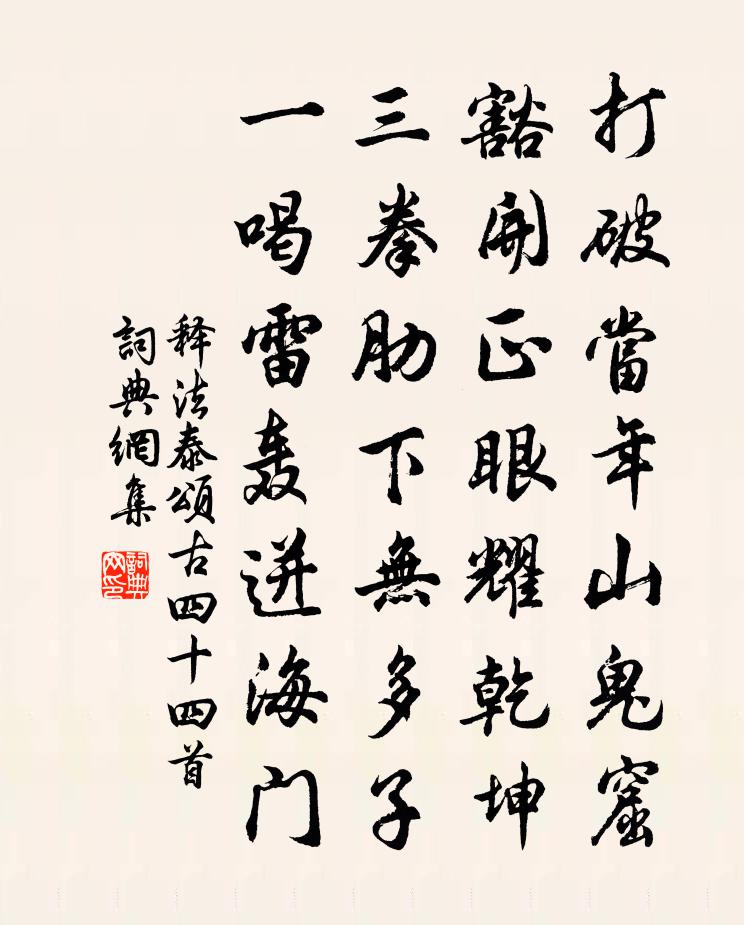 打破當年山鬼窟
豁開正眼耀乾坤
三拳肋下無多子
一喝雷轰迸海门
释法泰頌古四十四首
詞典網集
詞典网印